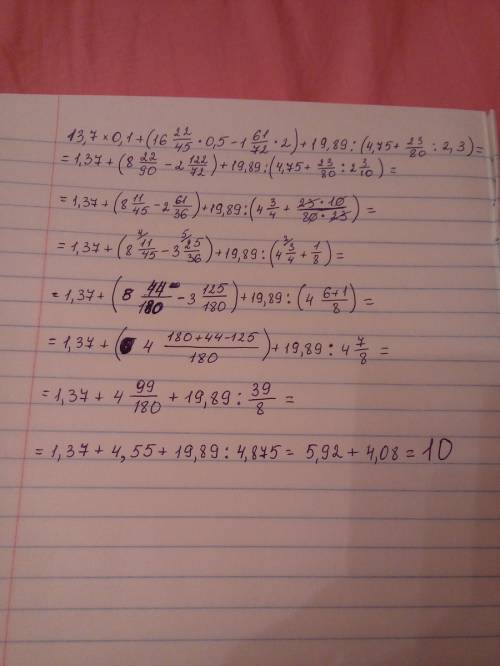 13,7×0,1+(16 22/45·0,5-1 61/72·2)+19,89:(4,75+23/80:2,3)=
=1,37+(8 22/90-2 122/72)+19,89:(4,75+23/80:2 3/10)=
=1,37+(8 11/45-2 61/36)+19,89:(4 3/4+23·10/80·23)=
=1,37+(8 4/ 11/45-3 5/ 25/36)+19,89:(4 2/ 3/4+1/8)=
=1,37+(8 44/180-3 125/180)+19,89:(4 6+1/8)=
=1,37+(4 180+44-125/180)+19,89:4 7/8=
=1,37+4 99/180+19,89:39/8=
=1,37+4,55+19,89:4,875=5,92+4,08=10